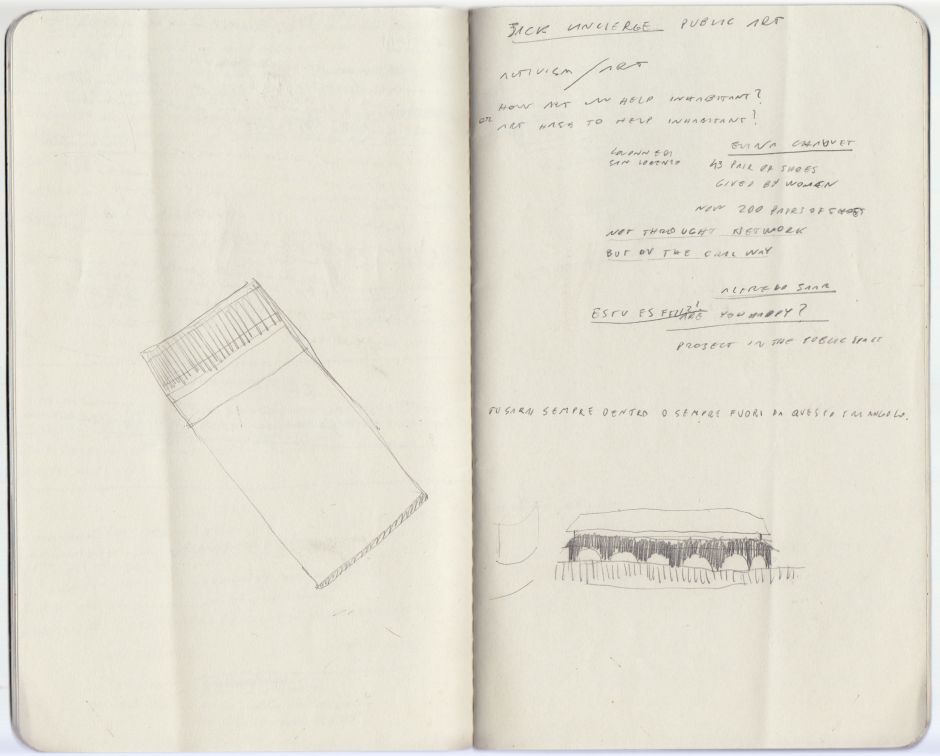 JACK UNCIERGE PUBLIC ART
ACTIVISM / ART
HOW ART CAN HELP INHABITANT?
OR ART HAS TO HELP INHABITANT?
ELINA CHAUVET
COLONNE DI
SAN LORENZO
43 PAIR OF SHOES
GIVED BY WOMEN
NOW 200 PAIRS OF SHOES
NOT THROUGHT NETWORK
BUT BY THE ORAL WAY
ALFREDO JAAR
ES TU ES FELIZ? ARE YOU HAPPY?
PROJECT IN THE PUBLIC SPACE
TU SARAI SEMPRE DENTRO O SEMPRE FUORI DA QUESTO TRIANGOLO.